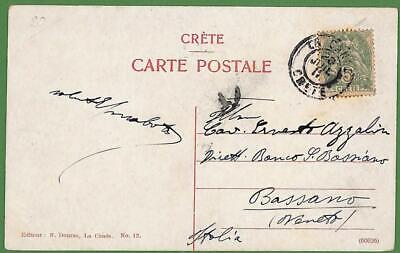 CRÈTE
CARTE POSTALE
CRETE
5
Cav. Ernesto Azzalin
Dirett. Banco S. Bassiano
Bassano
(Veneto)
Italia
Editeur : N. Douras, La Canée. No. 12.
(60626)